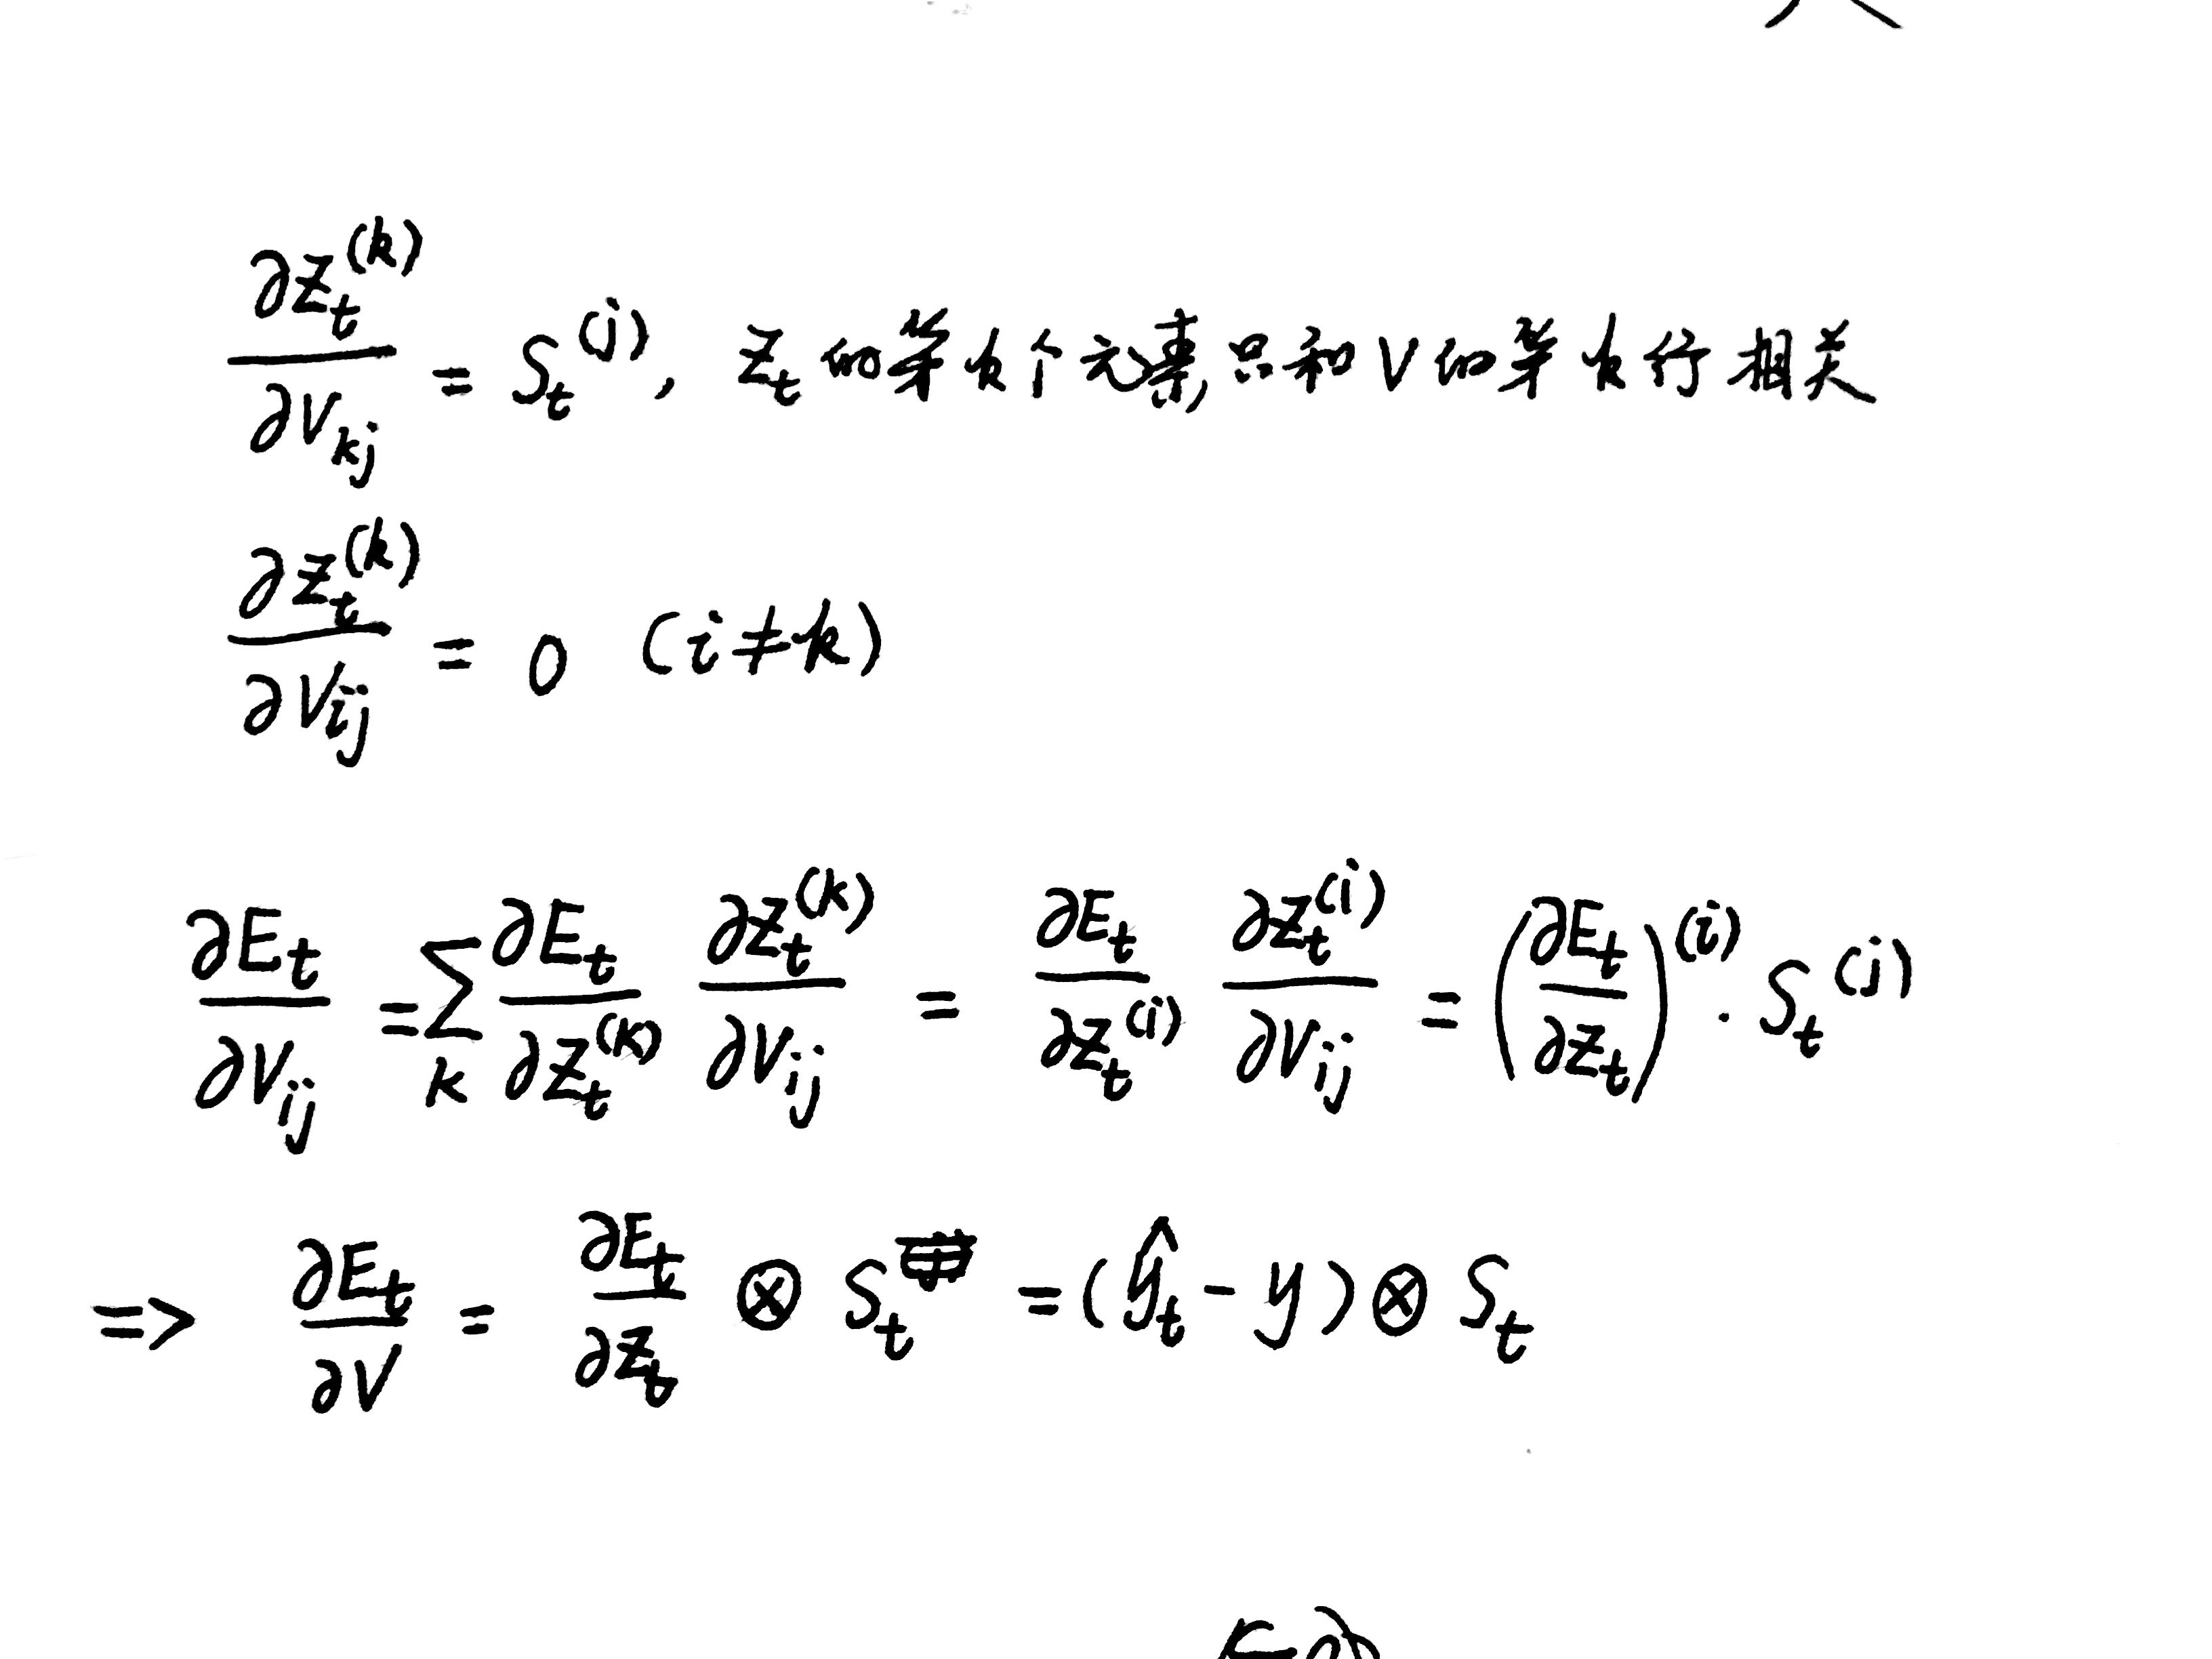 ∂z_t^(k) / ∂V_kj = S_t^(j), z_t 的第k个元素只和V的第k行相关
∂z_t^(k) / ∂V_ij = 0 (i≠k)
∂E_t / ∂V_ij = Σ_k ∂E_t / ∂z_t^(k) ∂z_t^(k) / ∂V_ij = ∂E_t / ∂z_t^(i) ∂z_t^(i) / ∂V_ij = (∂E_t / ∂z_t)^(i) · S_t^(j)
=> ∂E_t / ∂V = ∂E_t / ∂z_t ⊗ S_t = (ŷ_t - y) ⊗ S_t